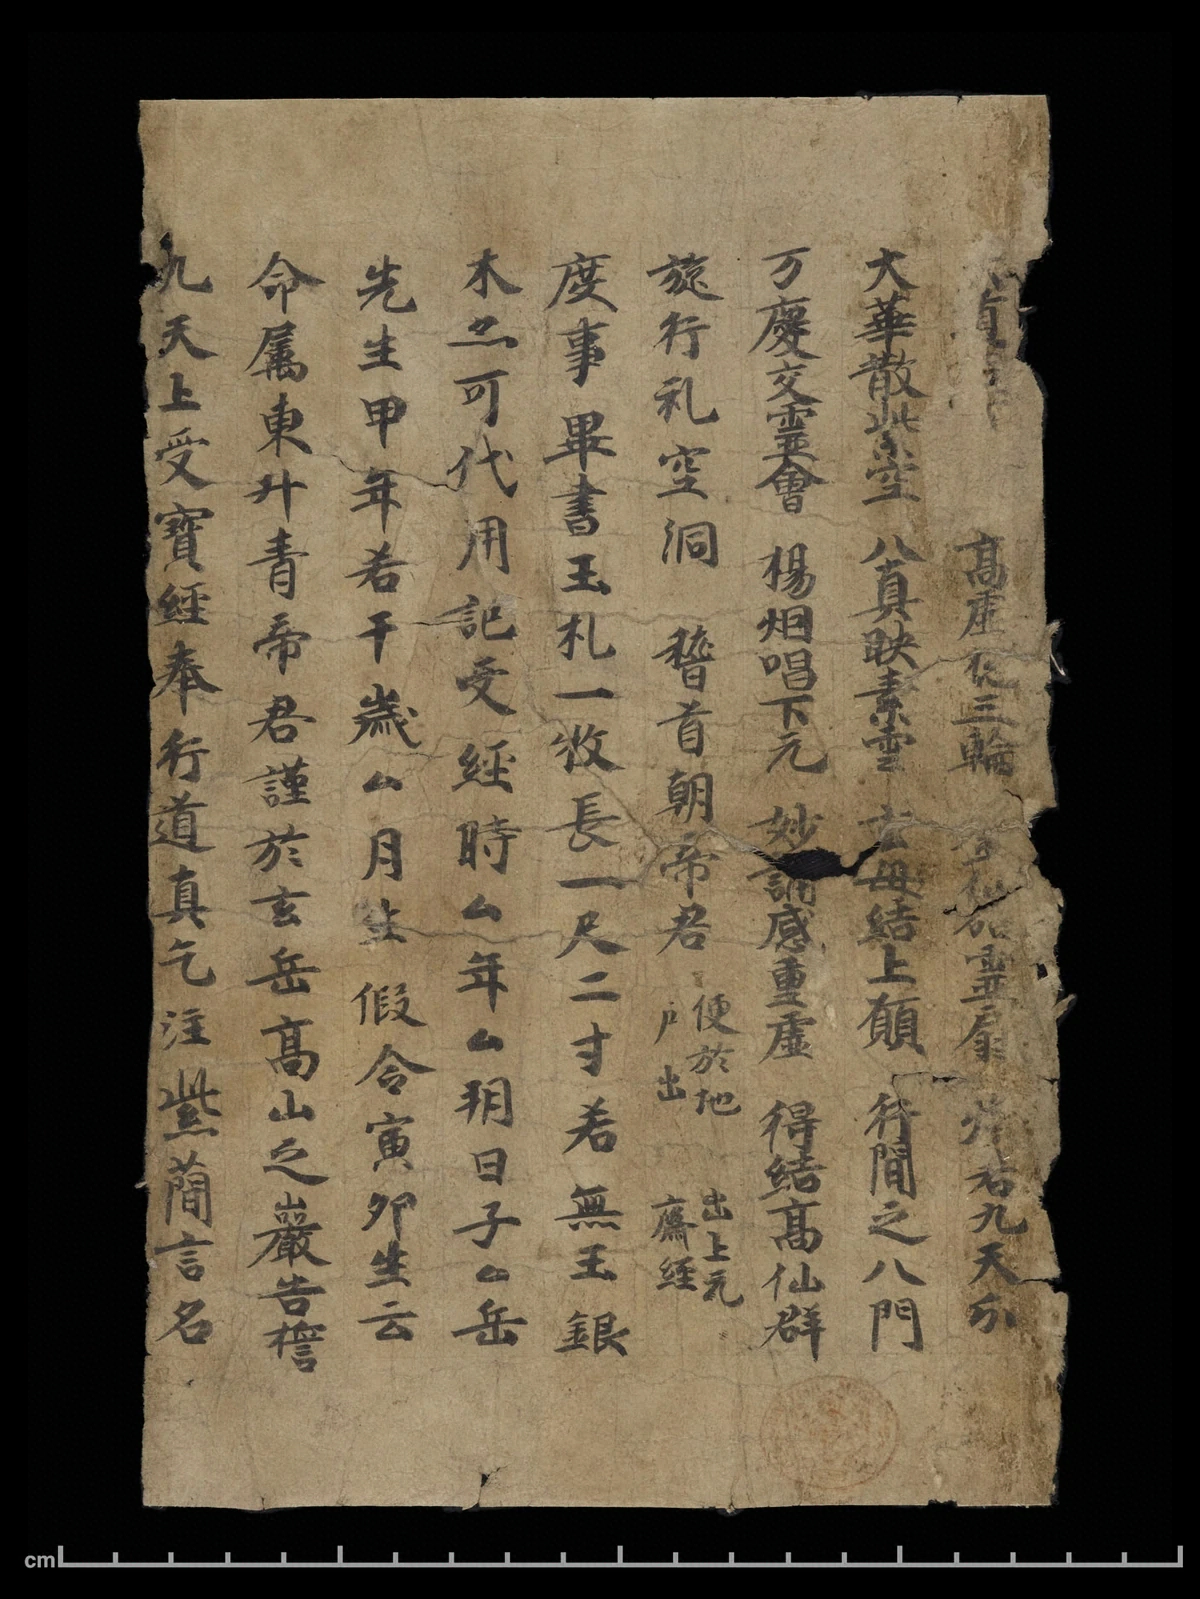 高虛化三輪 仙 靈 九天
大華散紫空 八真映素雲 玄母結上願 行間之八門
万慶交靈會 楊烟唱下元 妙誦感重虛 得結高仙群
旋行礼空洞 稽首朝帝君 便於地户出 出上元齋經
度事畢書玉札一枚長一尺二寸若無玉銀
木亦可代用記受經時厶年厶月朔日子厶岳
先生甲年若干歲厶月生 假令寅卯生云
命属東升青帝君謹於玄岳高山之巖告誓
九天上受寶經奉行道真乞注紫蘭言名